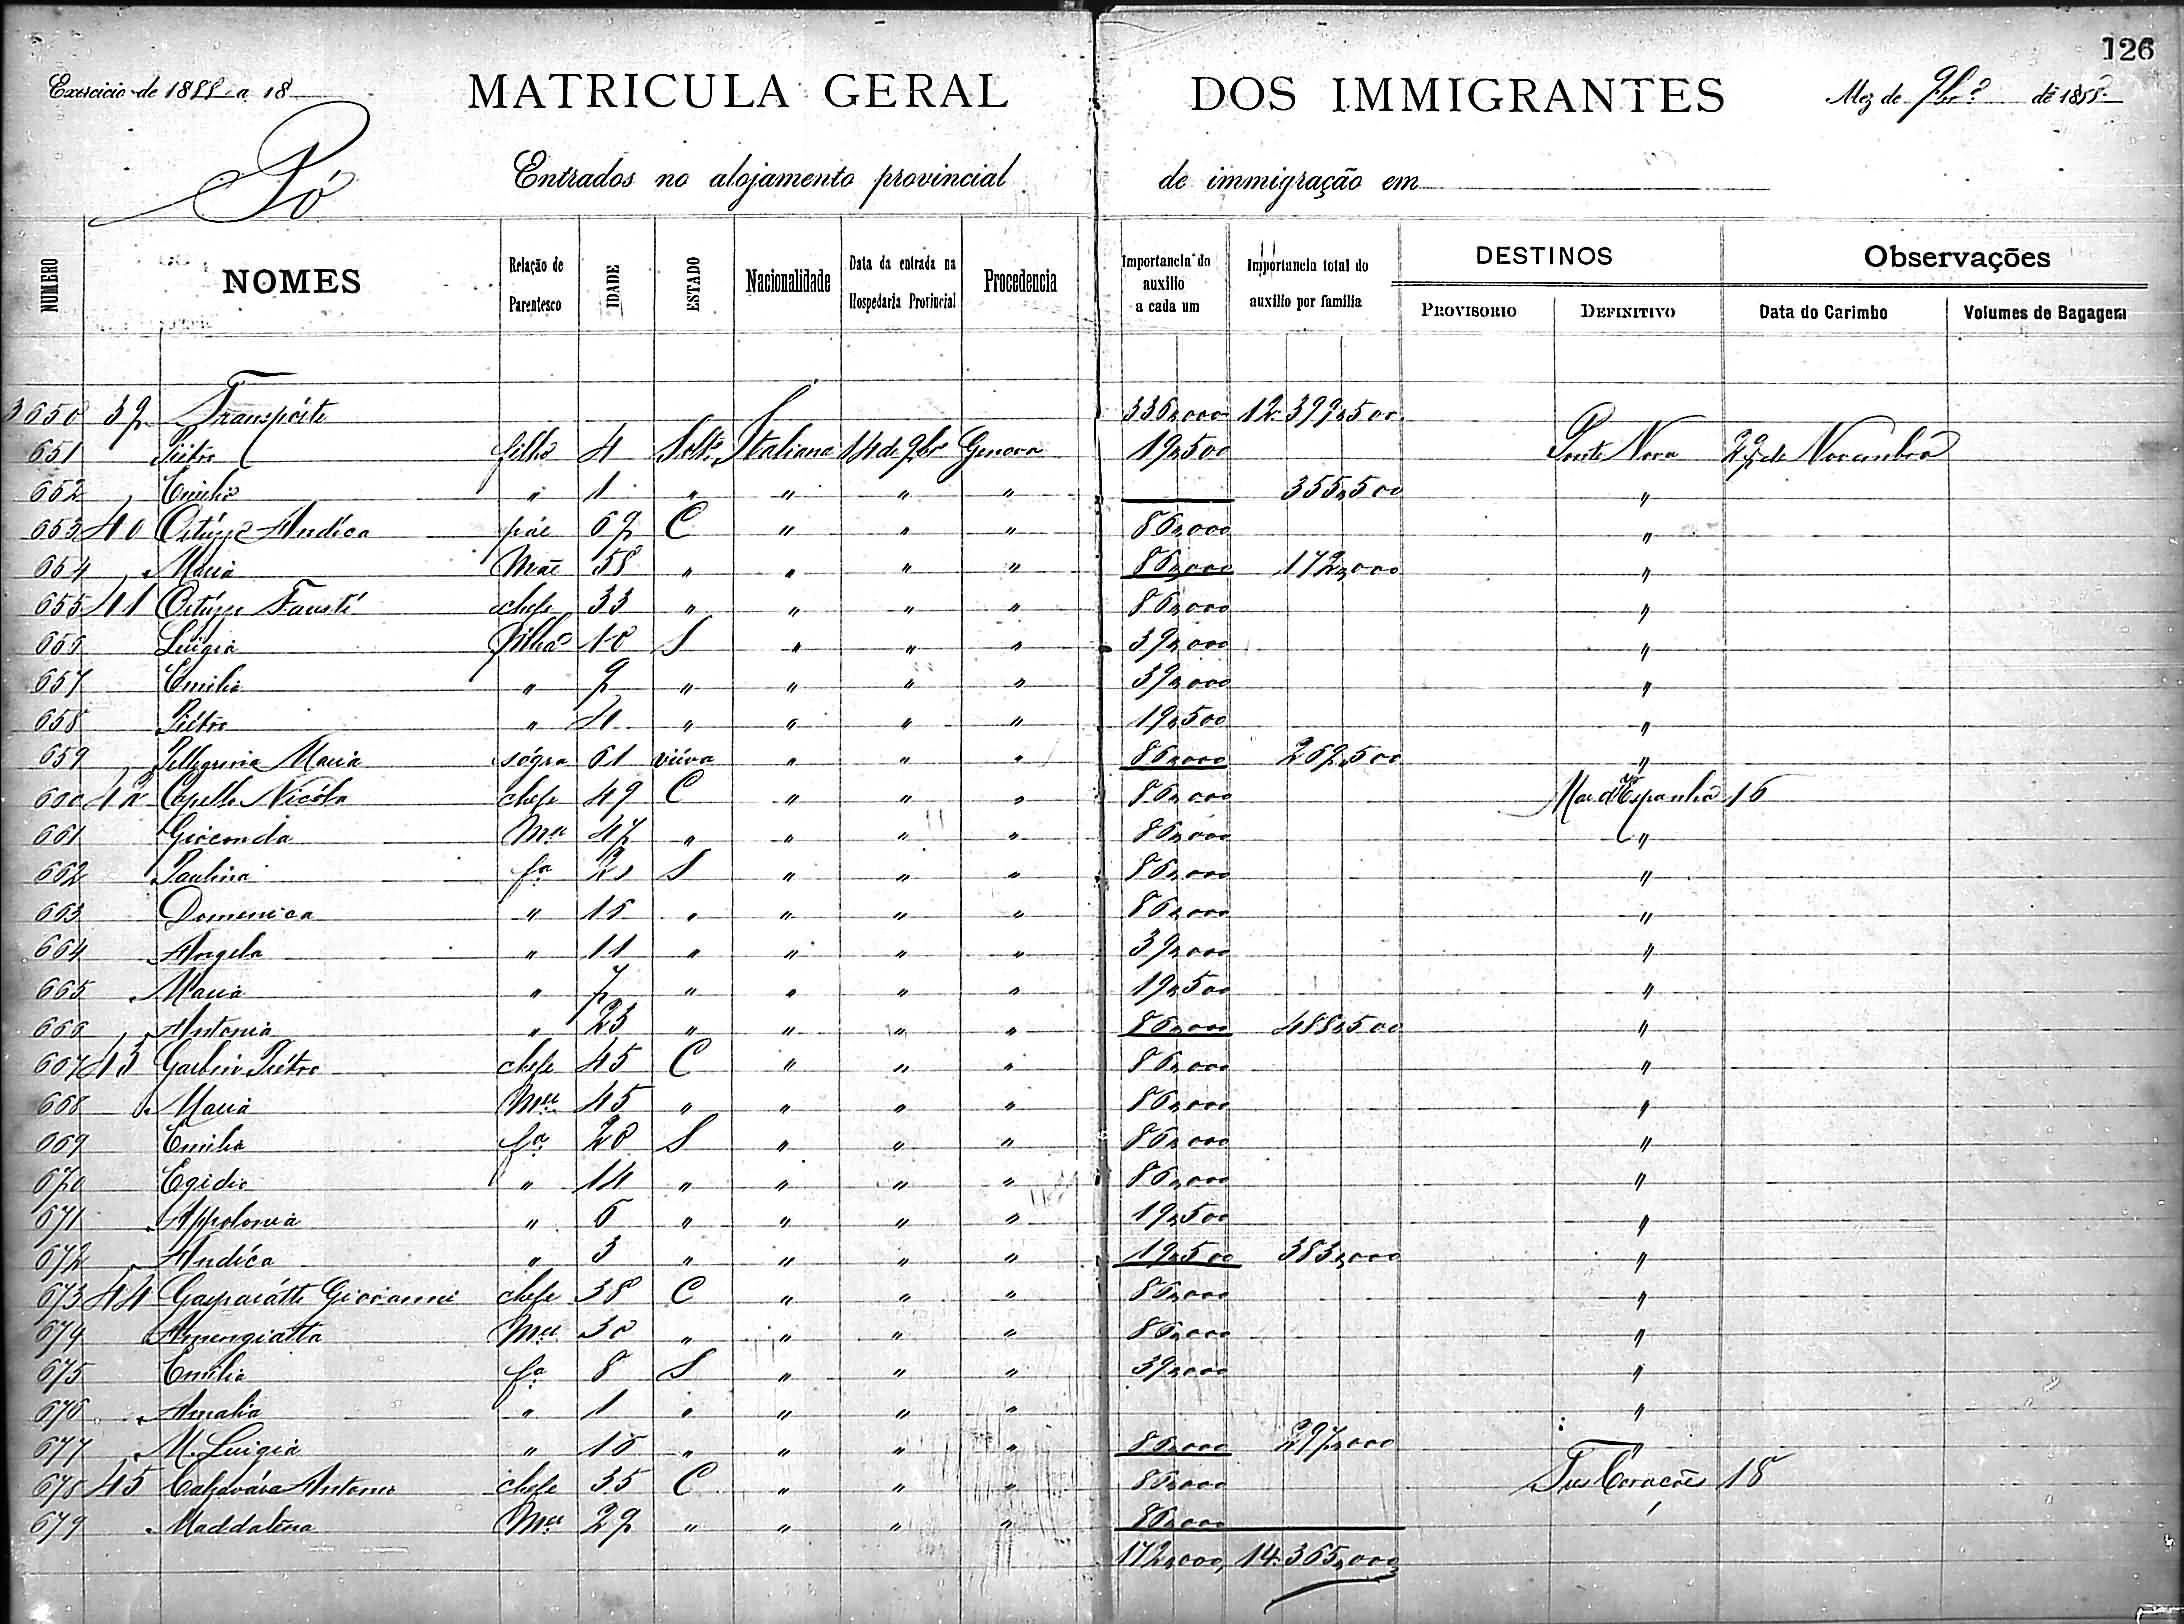 126
Exercicio de 1888 a 18
MATRICULA GERAL DOS IMMIGRANTES
Mez de 9br.º de 1888
Pó
Entrados no alojamento provincial de immigração em
NUMERO NOMES Relação de Parentesco IDADE ESTADO Nacionalidade Data da entrada na Hospedaria Provincial Procedencia Importancia do auxilio a cada um Importancia total do auxilio por familia DESTINOS PROVISORIO DEFINITIVO Observações Data do Carimbo Volumes de Bagagem
3650 39 Transpórte 336,000 12.399,500
651 Piétro filho 4 Solt.º Italiana 14 de 9br Genova 19,500 Ponte Nova 29 de Novembro
652 Emilio " 1 " " " " 355,500 "
653 40 Andréa páe 69 C " " " 86,000 "
654 Maria Mãe 58 " " " " 86,000 172,000 "
655 41 Fausti chefe 33 " " " " 86,000 "
656 Luigia filha 10 S " " " 39,000 "
657 Emilia " 9 " " " " 39,000 "
658 Piétro " 4 " " " " 19,500 "
659 Pellegrina Maria sógra 61 viúva " " " 86,000 269,500 "
660 42 Capello Nicóla chefe 49 C " " " 86,000 Mar d'Espanha 16
661 Gioconda Mer 47 " " " " 86,000 "
662 Paulina fa S " " " 86,000 "
663 Domenica " 15 " " " " 86,000 "
664 Angela " 11 " " " " 39,000 "
665 Maria " 7 " " " " 19,500 "
666 Antonia " 23 " " " " 86,000 488,500 "
667 43 Piétro chefe 45 C " " " 86,000 "
668 Maria Mer 45 " " " " 86,000 "
669 Emilia fa 20 S " " " 86,000 "
670 Egidio " 14 " " " " 86,000 "
671 Appolonia " 6 " " " " 19,500 "
672 Andréa " 3 " " " " 19,500 383,000 "
673 44 Gasparátto Giovanni chefe 38 C " " " 86,000 "
674 Mer 30 " " " " 86,000 "
675 Emilia fa 8 S " " " 39,000 "
676 Amalia " 1 " " " " "
677 M. Luigia " 15 " " " " 86,000 297,000
678 45 Antonio chefe 35 C " " " 86,000 Tres Corações 18
679 Maddalena Mer 29 " " " " 86,000
172,000 14.365,000